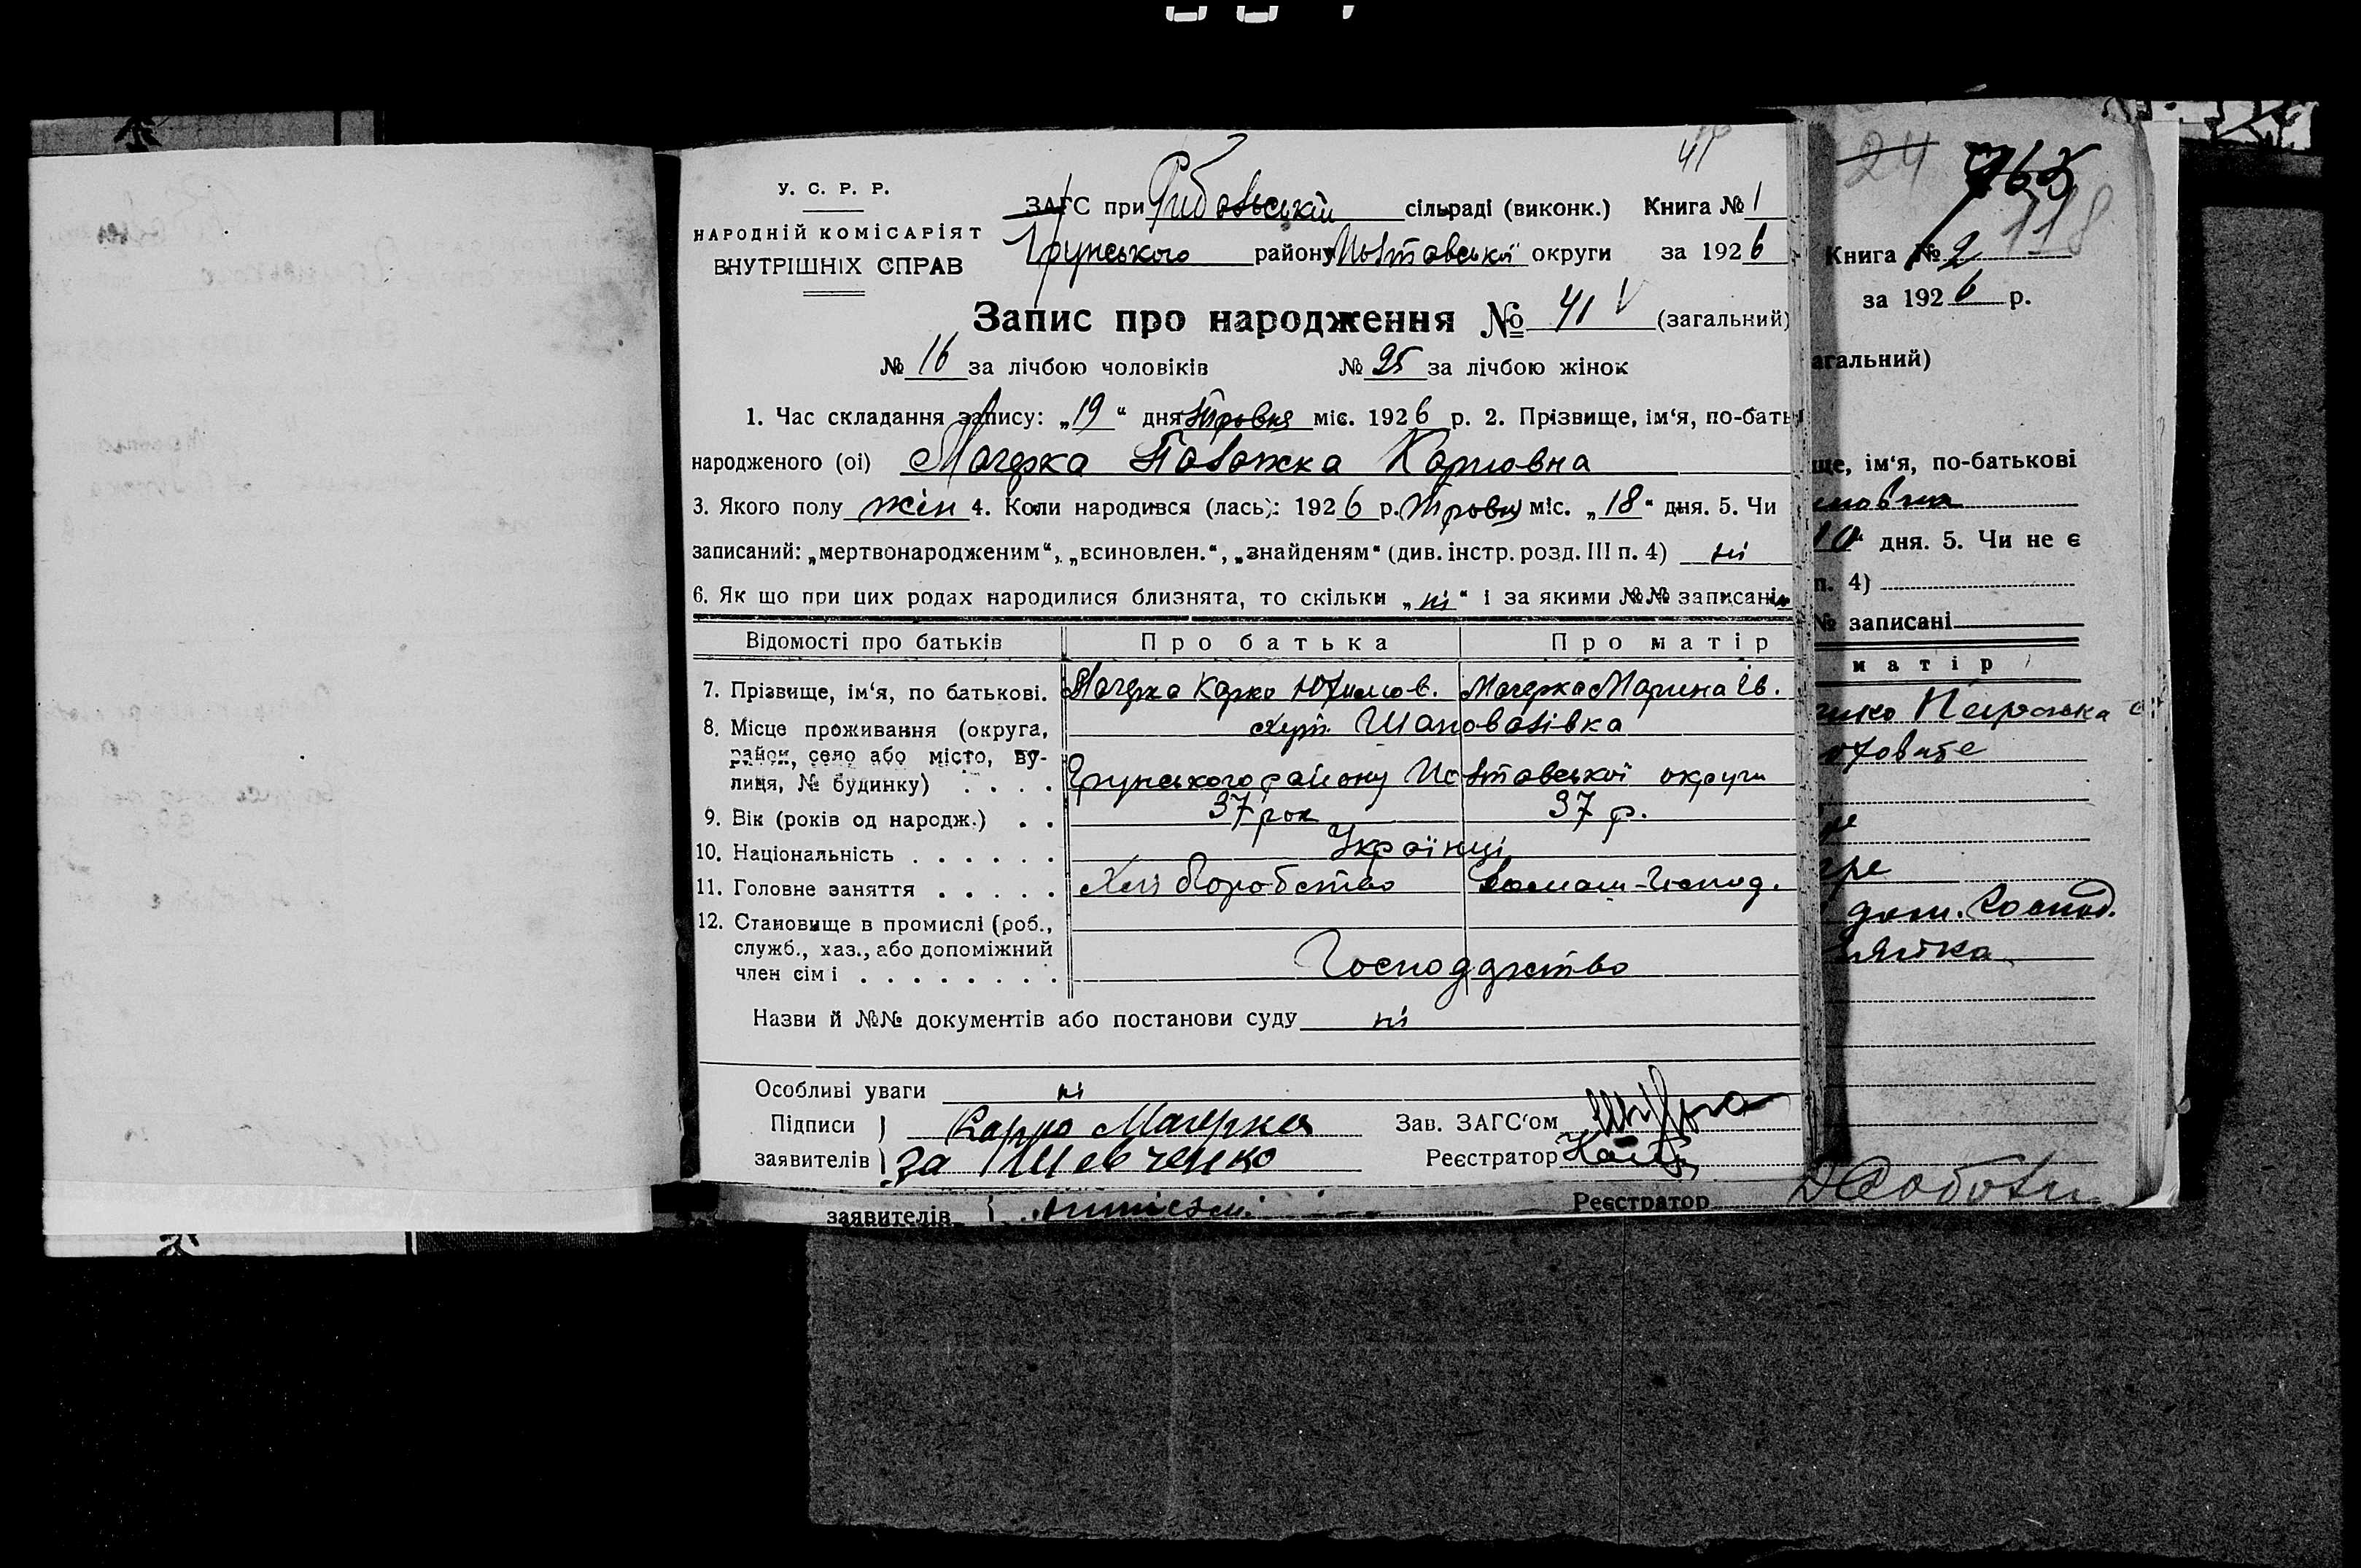 41
У. С. Р. Р.
НАРОДНІЙ КОМІСАРІЯТ
ВНУТРІШНІХ СПРАВ
ЗАГС при Рибальській сільраді (виконк.) Книга № 1
Грунського району Полтавської округи за 1926
Запис про народження № 41 (загальний)
№ 16 за лічбою чоловіків № 25 за лічбою жінок
1. Час складання запису: „19“ дня Травня міс. 1926 р. 2. Прізвище, ім‘я, по-бать
народженого (ої) Мачерка Палажка Карповна
3. Якого полу жін 4. Коли народився (лась): 1926 р. Травн міс. „18“ дня. 5. Чи
записаний: „мертвонародженим“, „всиновлен.“, „знайденям“ (див. інстр. розд. III п. 4) ні
6. Як що при цих родах народилися близнята, то скільки „ні“ і за якими №№ записані
Відомості про батьків Про батька Про матір
7. Прізвище, ім‘я, по батькові. Мачерка Карпо Юхимов. Мачерка Марина Ів.
8. Місце проживання (округа, хут. Шаповалівка
район, село або місто, ву-
лиця, № будинку) . . . . Грунського району Полтавської округи
9. Вік (років од народж.) . . 37 рок 37 р.
10. Національність . . . . . . Українці
11. Головне заняття . . . . . Хліборобство домаш-Господ.
12. Становище в промислі (роб.,
служб., хаз., або допоміжний
член сімі . . . . . . . . Господарство
Назви й №№ документів або постанови суду ні
Особливі уваги ні
Підписи } Карпо Мачерка Зав. ЗАГС‘ом
заявителів } за Шевченко Реєстратор
заявителів { Реєстратор
24
118
Книга № 2
за 1926 р.
агальний)
ще, ім‘я, по-батькові
10“ дня. 5. Чи не є
п. 4)
№ записані
матір
дом. Господ.